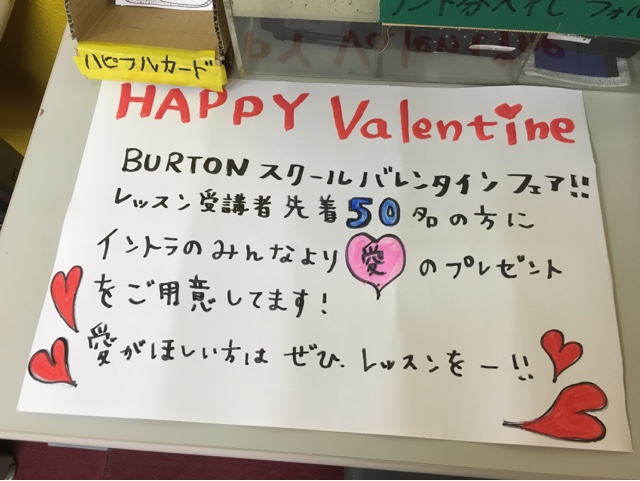 ハピフルカード
HAPPY Valentine
BURTON スクールバレンタインフェア!!
レッスン受講者先着50名の方に
イントラのみんなより愛のプレゼント
をご用意してます!
愛がほしい方はぜひレッスンをー!!